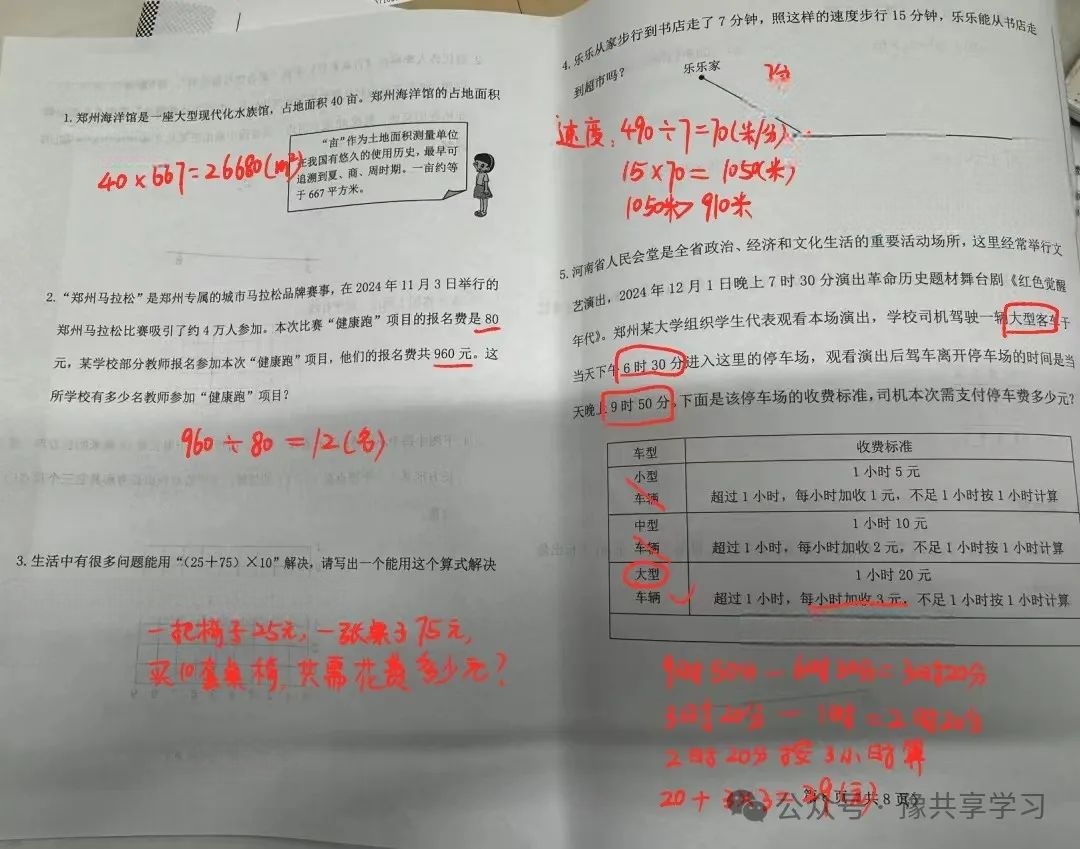 1.郑州海洋馆是一座大型现代化水族馆，占地面积 40 亩。郑州海洋馆的占地面积
“亩”作为土地面积测量单位
在我国有悠久的使用历史，最早可
追溯到夏、商、周时期。一亩约等
于 667 平方米。
40×667=26680(m²)
2.“郑州马拉松”是郑州专属的城市马拉松品牌赛事，在 2024 年 11 月 3 日举行的
郑州马拉松比赛吸引了约 4 万人参加。本次比赛“健康跑”项目的报名费是 80
元，某学校部分教师报名参加本次“健康跑”项目，他们的报名费共 960 元。这
所学校有多少名教师参加“健康跑”项目？
960÷80=12(名)
3.生活中有很多问题能用“(25+75)×10”解决，请写出一个能用这个算式解决
一把椅子25元，一张桌子75元，
买10套桌椅，共需花费多少元？
4.乐乐从家步行到书店走了 7 分钟，照这样的速度步行 15 分钟，乐乐能从书店走
到超市吗？
乐乐家
7分
速度：490÷7=70(米/分)
15×70=1050(米)
1050米>910米
5.河南省人民会堂是全省政治、经济和文化生活的重要活动场所，这里经常举行文
艺演出，2024 年 12 月 1 日晚上 7 时 30 分演出革命历史题材舞台剧《红色觉醒
年代》。郑州某大学组织学生代表观看本场演出，学校司机驾驶一辆大型客车于
当天下午 6 时 30 分进入这里的停车场，观看演出后驾车离开停车场的时间是当
天晚上 9 时 50 分。下面是该停车场的收费标准，司机本次需支付停车费多少元？
车型 收费标准
小型
车辆
1 小时 5 元
超过 1 小时，每小时加收 1 元，不足 1 小时按 1 小时计算
中型
车辆
1 小时 10 元
超过 1 小时，每小时加收 2 元，不足 1 小时按 1 小时计算
大型
车辆
1 小时 20 元
超过 1 小时，每小时加收 3 元，不足 1 小时按 1 小时计算
9时50分-6时30分=3时20分
3时20分-1时=2时20分
2时20分按3小时算
20+3×3=29(元)
页 共 8 页
公众号·豫共享学习